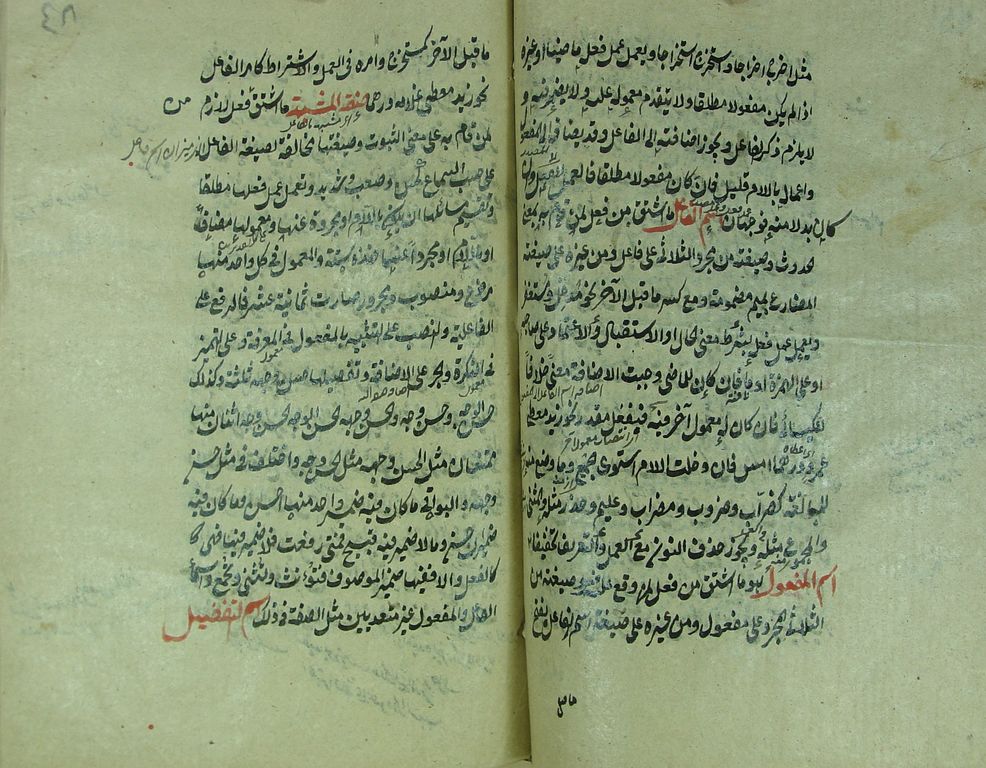 مثل اخرج اخراجا واستخرج استخراجا ويعمل عمل فعله ماضيا او غيره
اذا لم يكن مفعولا مطلقا ولا يتقدم معموله عليه ولا يضمر فيه و
لا يلزم ذكر الفاعل ويجوز اضافته الى الفاعل وقد يضاف الى المفعول
واعماله باللام قليل فان كان مفعولا مطلقا فالعمل للفعل وان
كان بدلا منه فوجهان اسم الفاعل ما اشتق من فعل لمن قام به بمعنى
الحدوث وصيغته من مجرد الثلاثي على فاعل ومن غيره على صيغة
المضارع بميم مضمومة ومع كسر ما قبل الآخر نحو مدخل ومستغفر
ويعمل عمل فعله بشرط معنى الحال او الاستقبال والاعتماد على صاحبه
او على الهمزة او ما فان كان للماضي وجبت الاضافة معنى خلافا
للكسائي فان كان له معمول آخر فبفعل مقدر نحو زيد معطي
عمرو درهما امس فان دخلت اللام استوى الجميع وما وضع منه
للمبالغة كضراب وضروب ومضراب وعليم وحذر مثله والمثنى
والمجموع مثله ويجوز حذف النون مع العمل والتعريف تخفيفا
اسم المفعول هو ما اشتق من فعل لمن وقع عليه وصيغته من
الثلاثي المجرد على مفعول ومن غيره على صيغة اسم الفاعل بفتح
ما قبل
ما قبل الآخر كمستخرج وامره في العمل والاشتراط كامر الفاعل
نحو زيد معطى غلامه درهما صفة المشبهة ما اشتق من فعل لازم
لمن قام به على معنى الثبوت وصيغتها مخالفة لصيغة الفاعل
على حسب السماع كحسن وصعب وشديد وتعمل عمل فعلها مطلقا
وتقسيم مسائلها ان يكون باللام او مجردة عنها ومعمولها مضافة
او باللام او مجردا عنها هذه ستة والمعمول في كل واحد منها
مرفوع ومنصوب ومجرور صارت ثمانية عشر فالرفع على
الفاعلية والنصب على التشبيه بالمفعول في المعرفة وعلى التمييز
في النكرة والجر على الاضافة وتفصيلها حسن وجهه ثلثة وكذلك
حسن الوجه وحسن وجه الحسن وجهه الحسن الوجه الحسن وجه اثنان منها
ممتنعان مثل الحسن وجهه مثل الحسن وجه واختلف في مثل حسن
وجهه والبواقي ما كان فيه ضمير واحد منها احسن وما كان فيه
ضميران حسن وما لا ضمير فيه قبيح فمتى رفعت فلا ضمير فيها فهي
كالفعل والا ففيها ضمير الموصوف فتؤنث وتثنى وتجمع واسما
الفاعل والمفعول غير متعديين مثل الصفة في ذلك اسم التفضيل